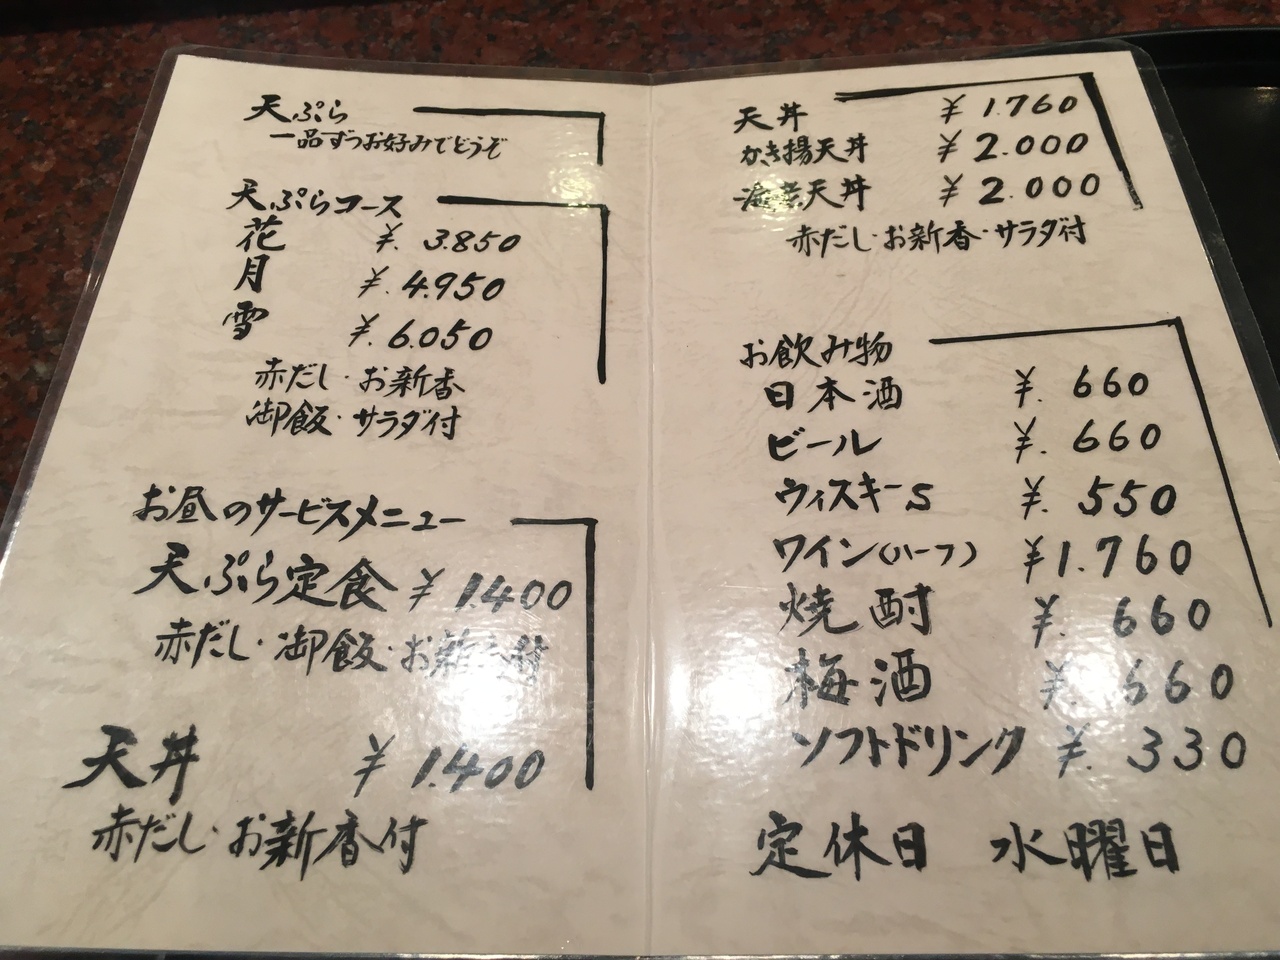 天ぷら
一品ずつお好みでどうぞ
天ぷらコース
花 ¥.3.850
月 ¥.4.950
雪 ¥.6.050
赤だし・お新香
御飯・サラダ付
お昼のサービスメニュー
天ぷら定食 ¥1.400
赤だし・御飯・お新香付
天丼 ¥1.400
赤だし・お新香付
天丼 ¥1.760
かき揚天丼 ¥2.000
海老天丼 ¥2.000
赤だし・お新香・サラダ付
お飲み物
日本酒 ¥.660
ビール ¥.660
ウィスキーS ¥.550
ワイン(ハーフ) ¥1.760
焼酎 ¥.660
梅酒 ¥.660
ソフトドリンク ¥.330
定休日 水曜日